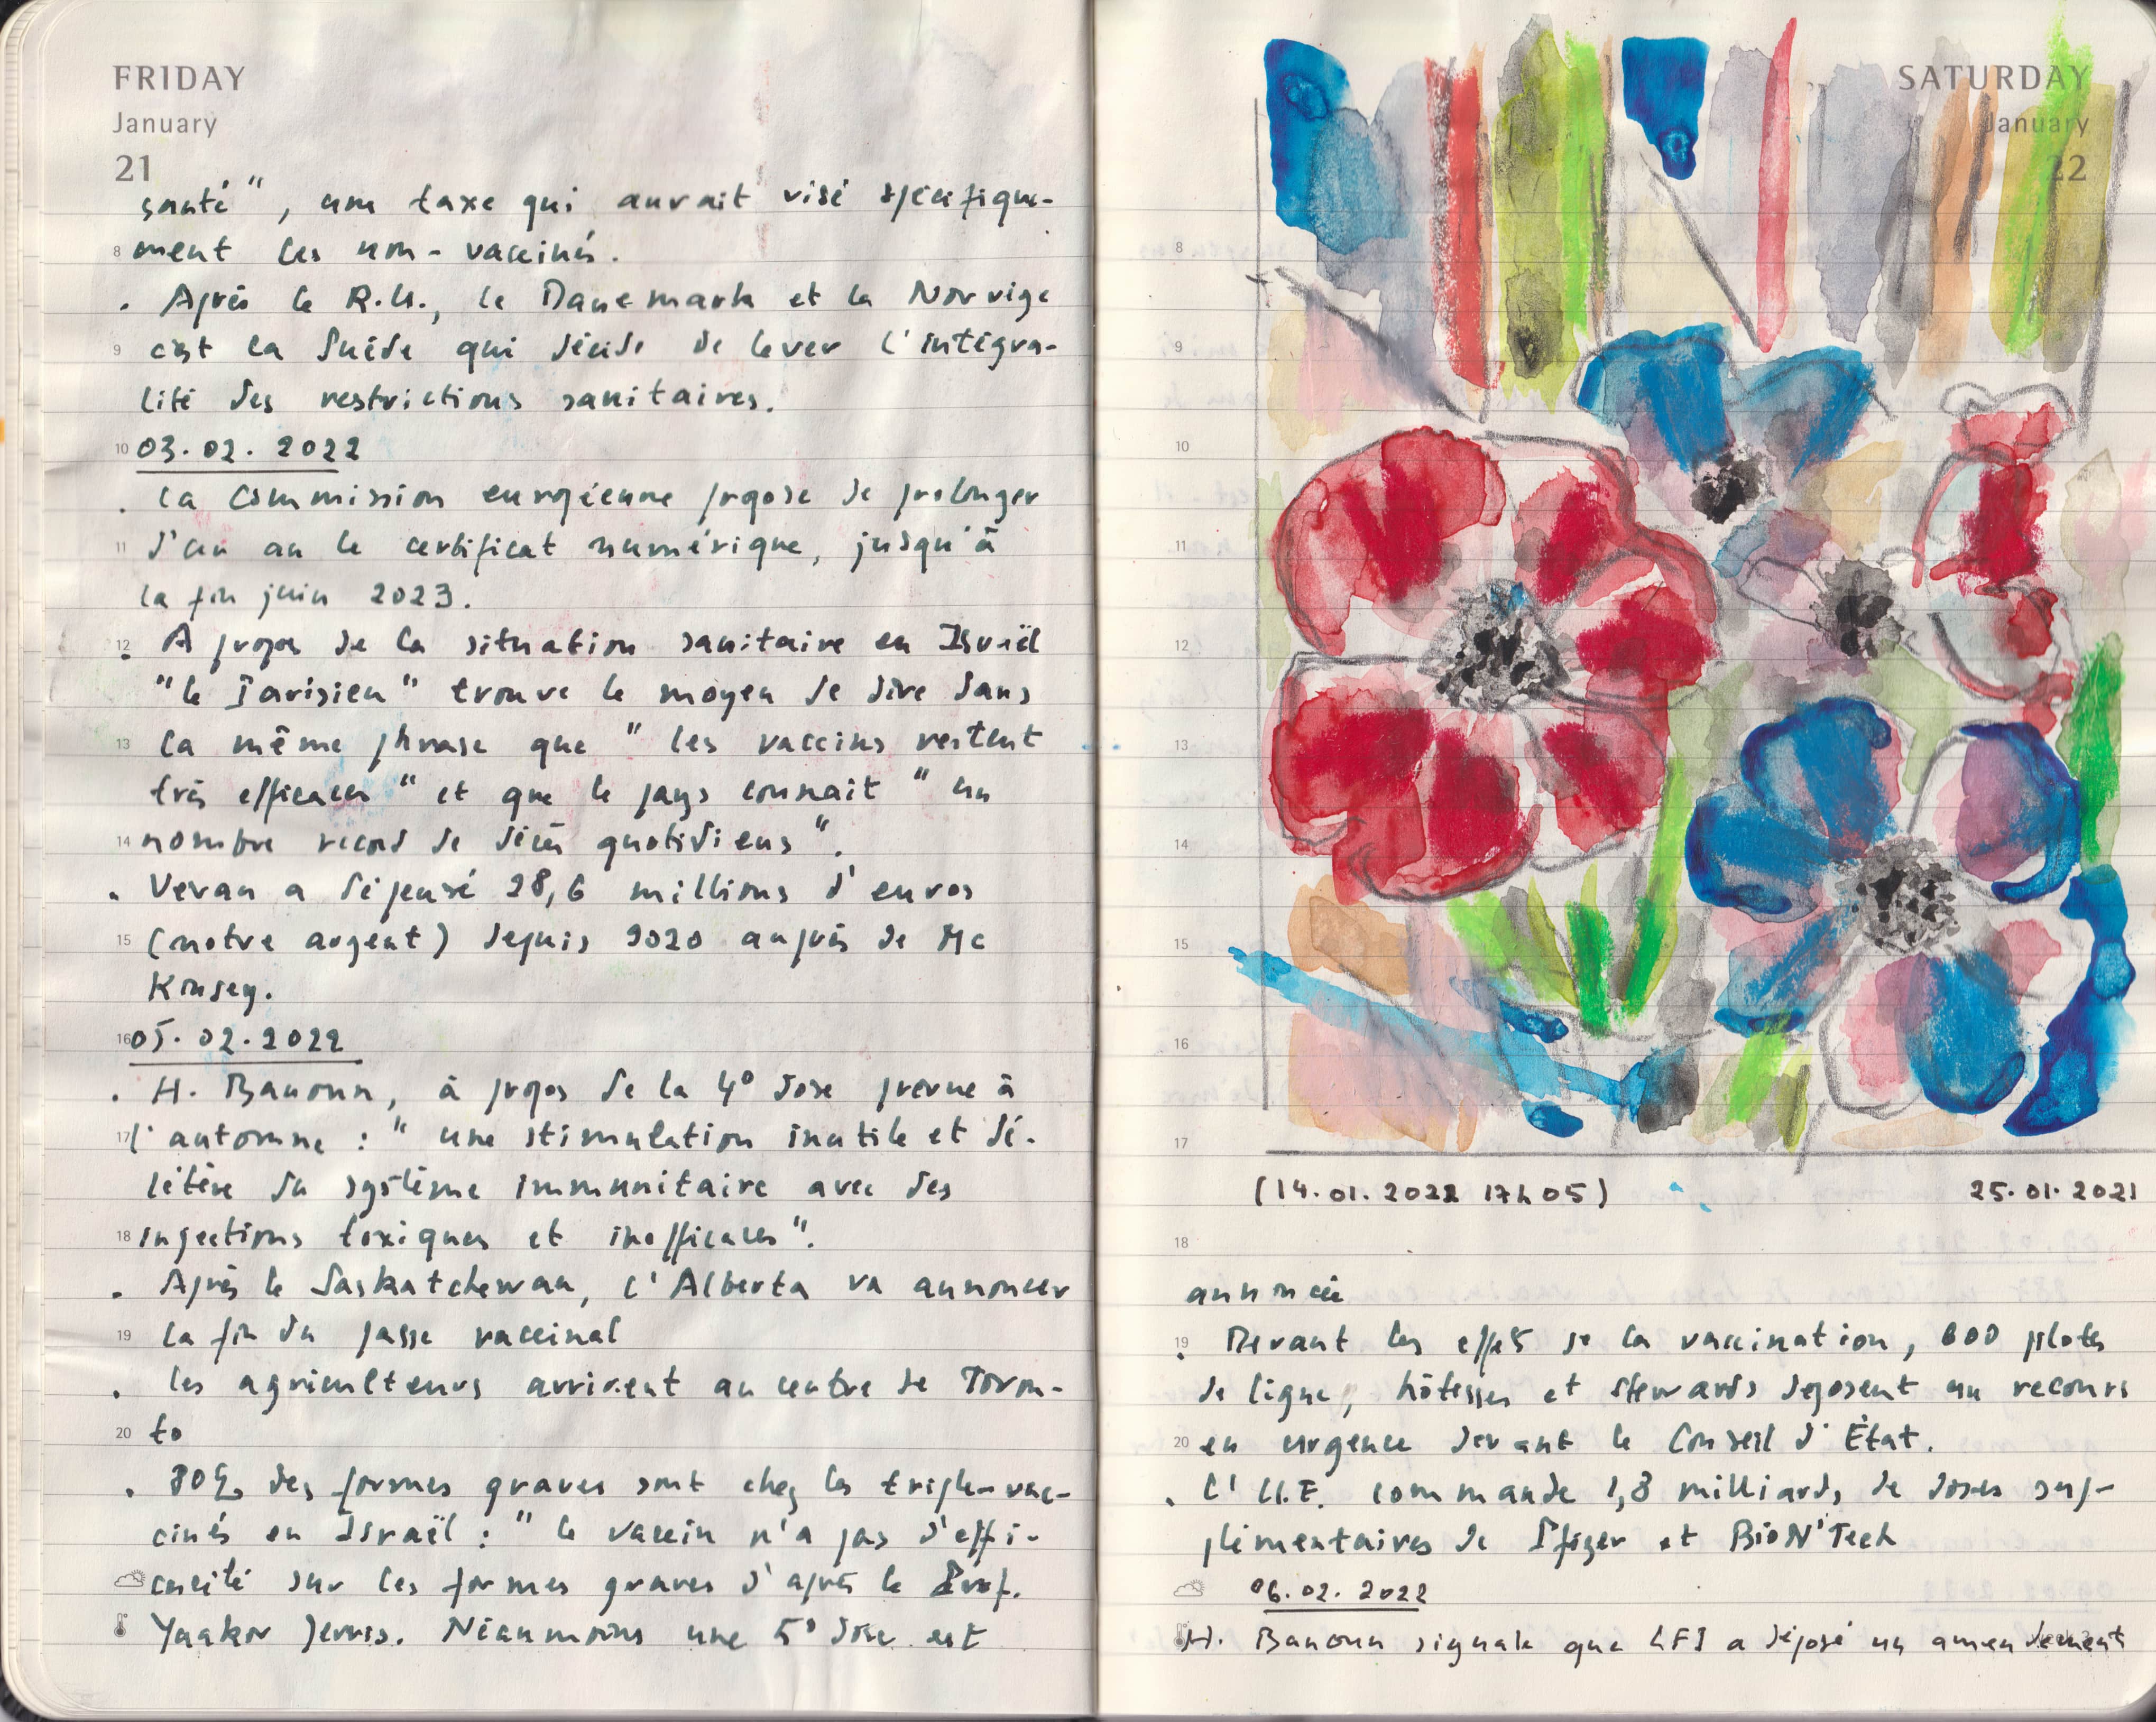 FRIDAY
January
21
santé", une taxe qui aurait visé spécifique-
8 ment les non-vaccinés.
. Après le R.U., le Danemark et la Norvège
9 c'est la Suède qui décide de lever l'intégra-
lité des restrictions sanitaires.
10 03.02.2022
. La Commission européenne propose de prolonger
11 d'un an le certificat numérique, jusqu'à
la fin juin 2023.
12 . A propos de la situation sanitaire en Israël
"le Parisien" trouve le moyen de dire dans
13 la même phrase que "les vaccins restent
très efficaces" et que le pays connait "un
14 nombre record de décès quotidiens".
. Veran a dépensé 28,6 millions d'euros
15 (notre argent) depuis 2020 auprès de Mc
Kinsey.
16 05.02.2022
. H. Banoun, à propos de la 4° dose prévue à
17 l'automne : "une stimulation inutile et dé-
létère du système immunitaire avec des
18 injections toxiques et inefficaces".
. Après le Saskatchewan, l'Alberta va annoncer
19 la fin du passe vaccinal
. les agriculteurs arrivent au centre de Toron-
20 to
. 80% des formes graves sont chez les triple-vac-
cinés en Israël : "le vaccin n'a pas d'effi-
cacité sur les formes graves d'après le Prof.
Yaakov Jerris. Néanmoins une 5° dose est
SATURDAY
January
22
8
9
10
11
12
13
14
15
16
17
(14.01.2022 17h05) 25.01.2021
18
annoncée
19 . Devant les effets de la vaccination, 600 pilotes
de ligne, hôtesses et stewards déposent un recours
20 en urgence devant le Conseil d'État.
. L'U.E. commande 1,8 milliards de doses sup-
plémentaires de Pfizer et BioN'Tech
06.02.2022
H. Banoun signale que LFI a déposé un amendement